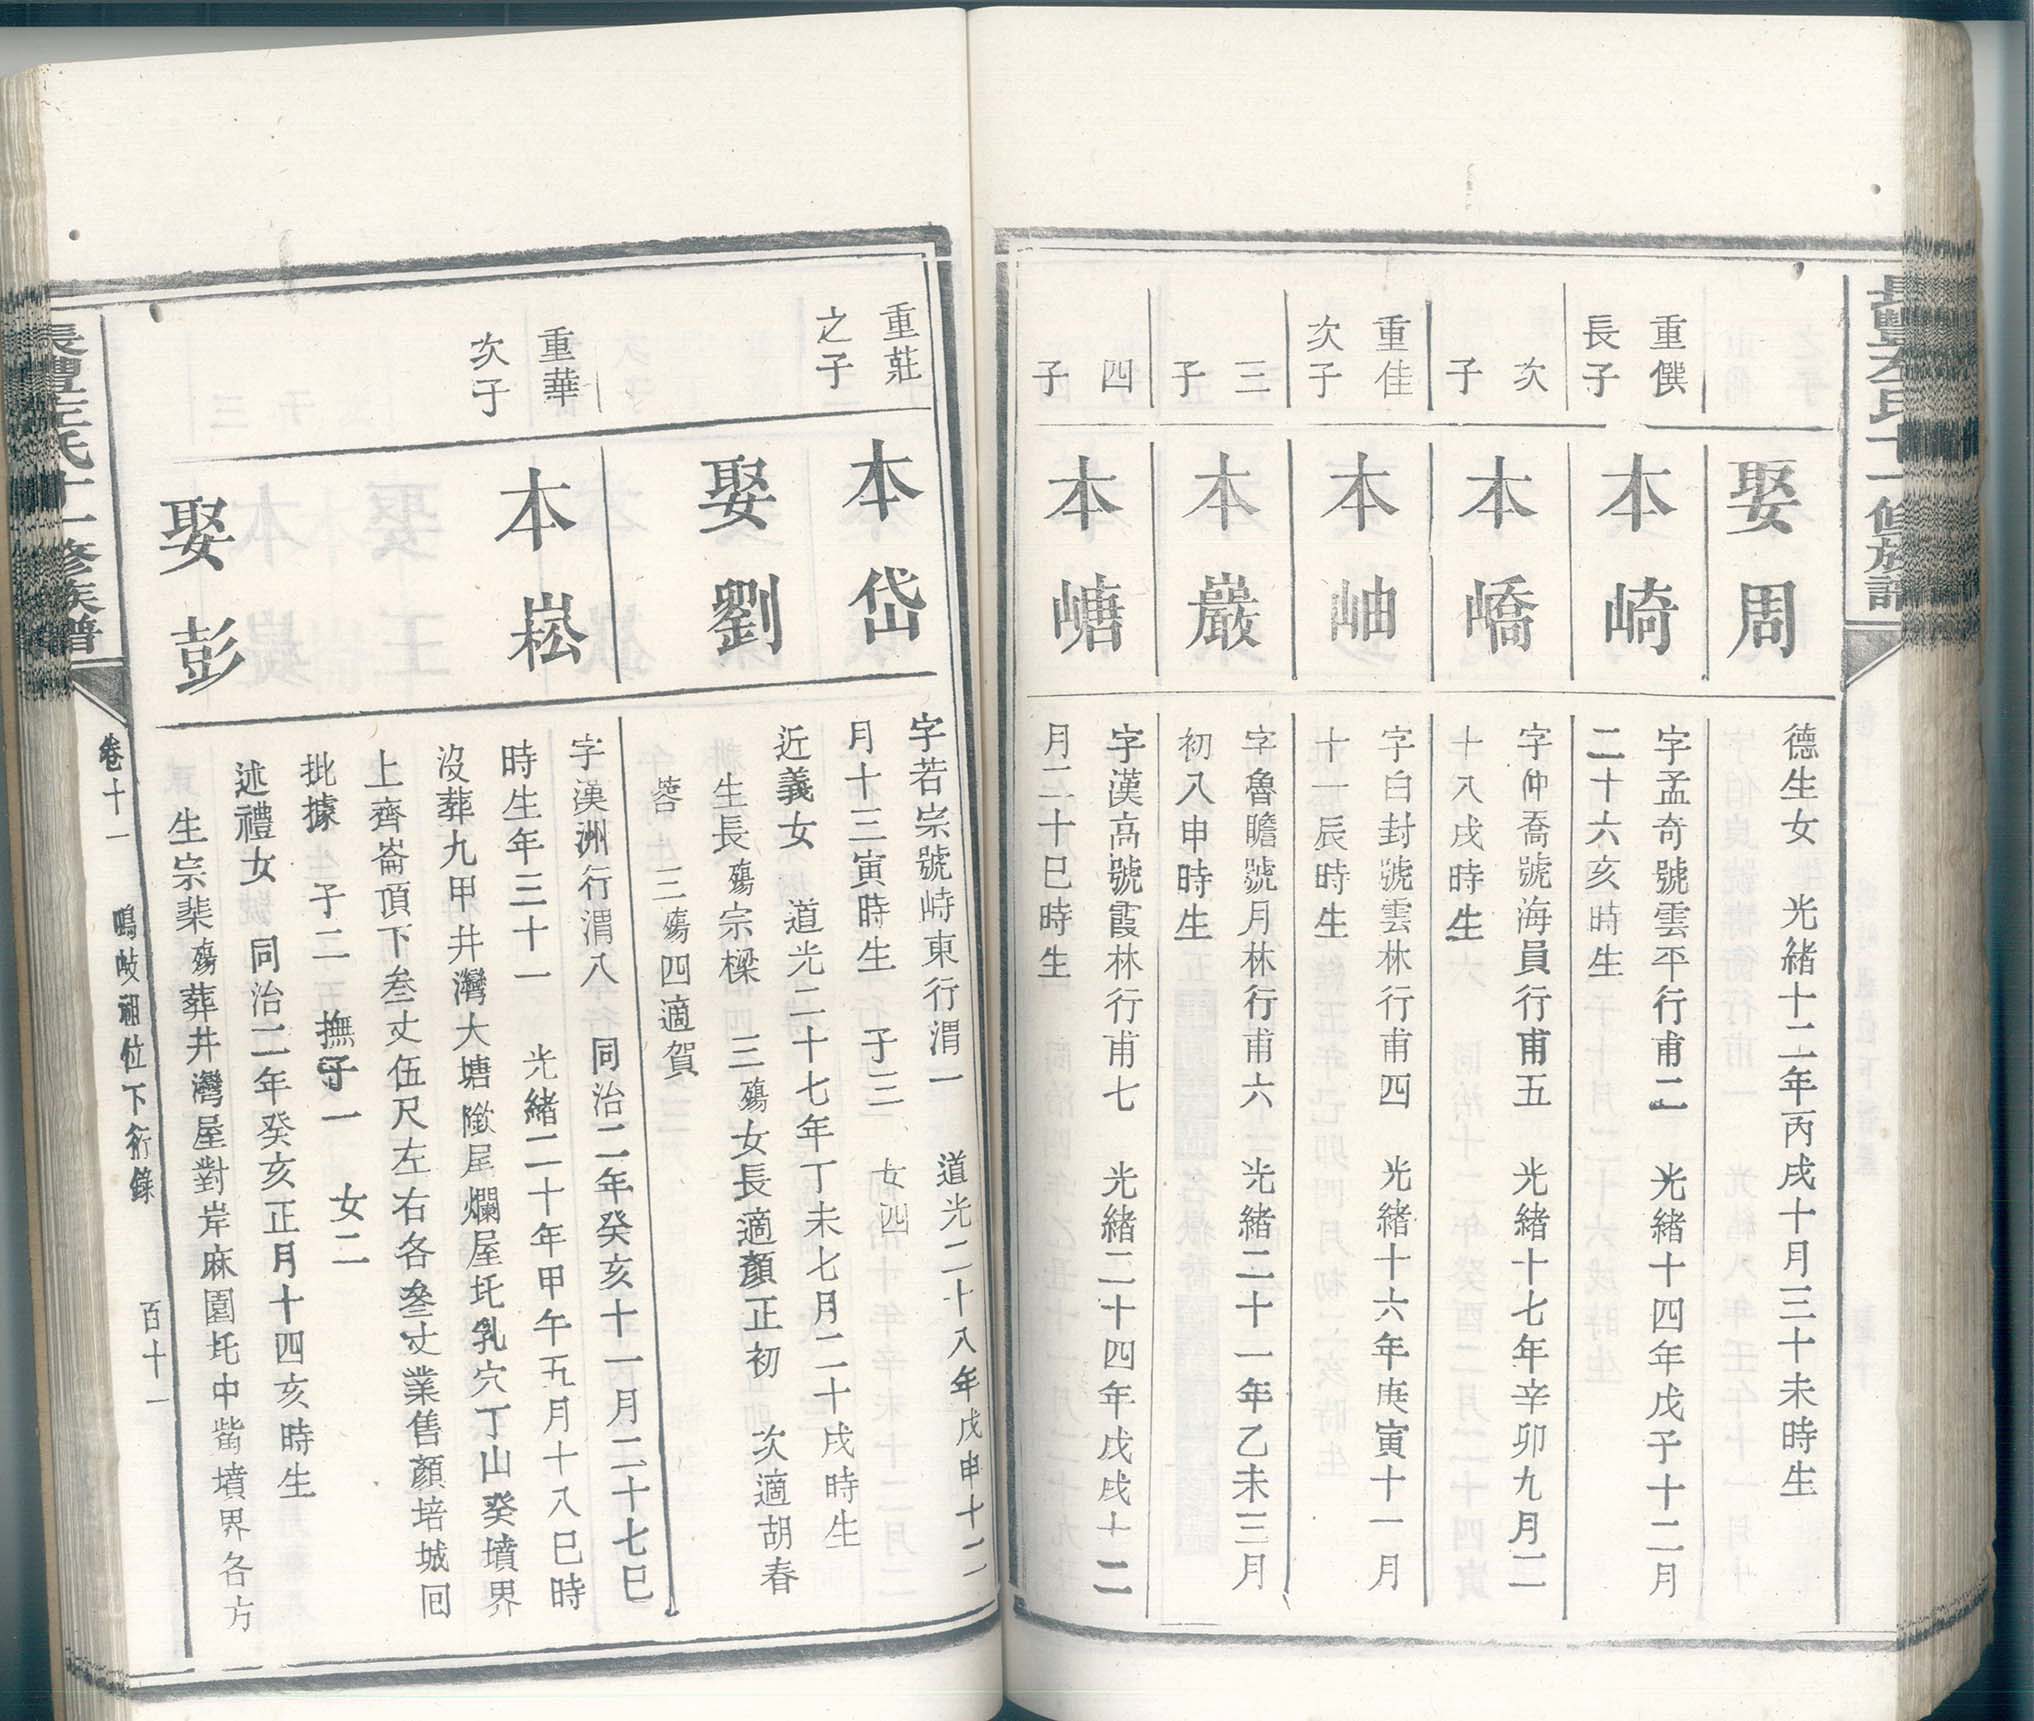 娶周
德生女　光緒十二年丙戌十月三十未時生
重僎
長子
本崎
字孟奇號雲平行甫二　光緒十四年戊子十二月
二十六亥時生
次
子
本嶠
字仲喬號海員行甫五　光緒十七年辛卯九月二
十八戌時生
重佳
次子
本岫
字白封號雲林行甫四　光緒十六年庚寅十一月
十一辰時生
三
子
本巖
字魯瞻號月林行甫六　光緒二十一年乙未三月
初八申時生
四
子
本嵣
字漢高號霞林行甫七　光緒二十四年戊戌十二
月二十巳時生
重莊
之子
本岱
字若宗號峙東行渭一　道光二十八年戊申十二
月十三寅時生　子三　女四
娶劉
近義女　道光二十七年丁未七月二十戌時生
生長殤宗樑　三殤女長適顏正初　次適胡春
蓉　三殤四適賀
重華
次子
本崧
字漢洲行渭八　同治二年癸亥十一月二十七巳
時生年三十一　光緒二十年甲午五月十八巳時
沒葬九甲井灣大塘墘尾爛屋圫乳穴丁山癸墳界
上齊崙頂下叁丈伍尺左右各叁丈業售顏培城回
批據　子二　撫子一　女二
娶彭
述禮女　同治二年癸亥正月十四亥時生
生宗棐殤葬井灣屋對岸麻園圫中嘴墳界各方
氏十一修族譜
卷十一　鳴岐祖位下行錄　百十一